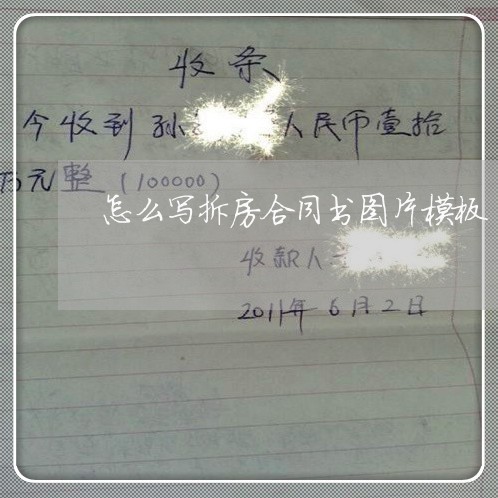 收条
今收到孙 人民币壹拾
万元整（100000）
怎么写拆房合同书图片模板
收款人
2011年6月2日